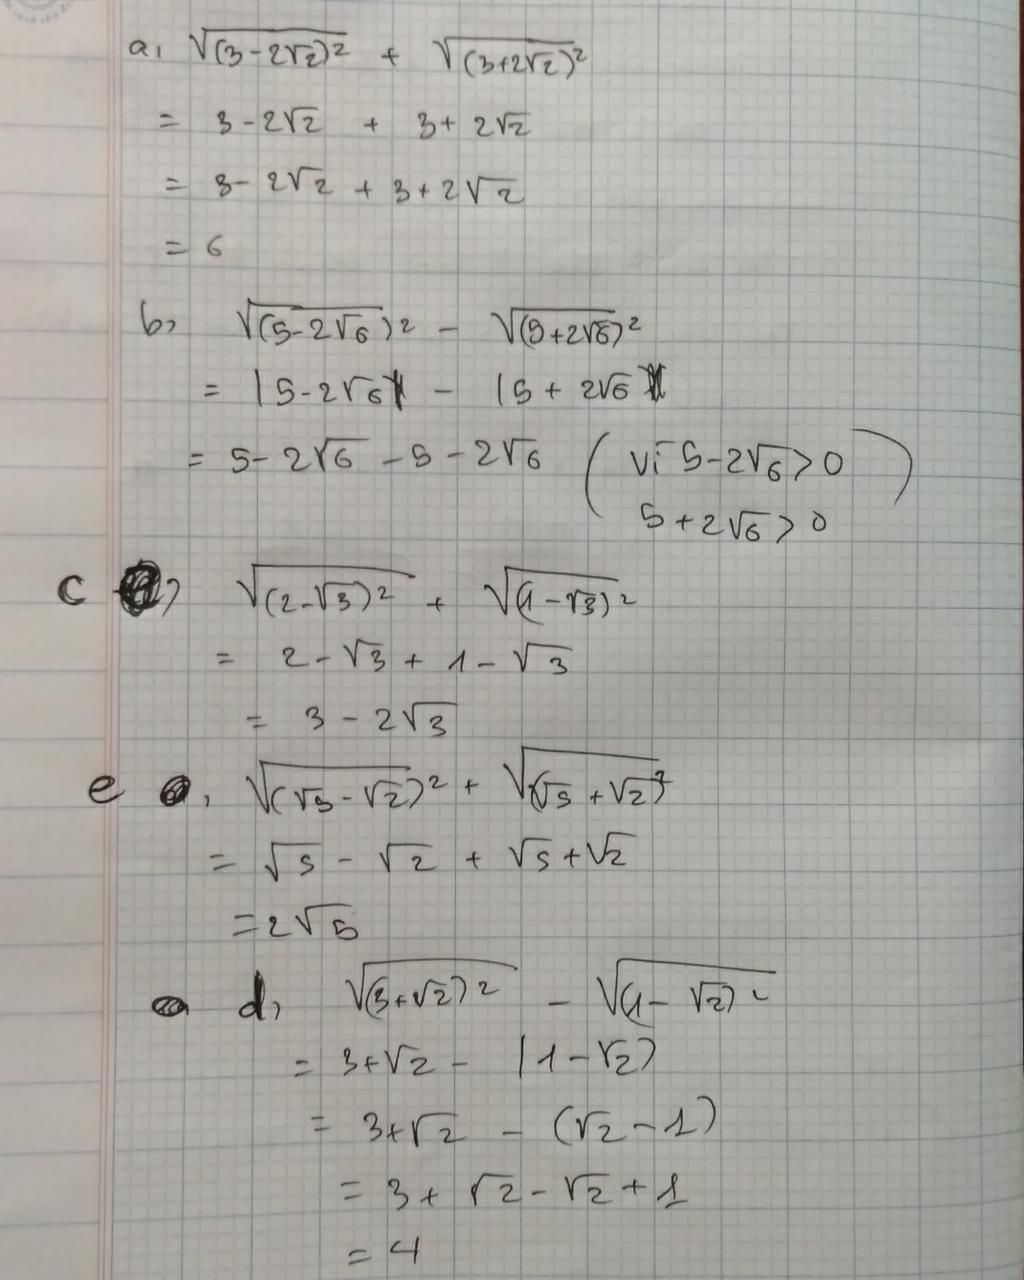 a, √(3-2√2)² + √(3+2√2)²
= 3-2√2 + 3+2√2
= 3-2√2 + 3+2√2
= 6
b, √(5-2√6)² - √(5+2√6)²
= |5-2√6| - |5+2√6|
= 5-2√6 -5-2√6 (vì 5-2√6>0
5+2√6>0)
c, √(2-√3)² + √(1-√3)²
= 2-√3+1-√3
= 3-2√3
e, √(√5-√2)² + √(√5+√2)²
= √5-√2 + √5+√2
=2√5
d, √(3+√2)² - √(1-√2)²
= 3+√2 - |1-√2)
= 3+√2 - (√2-1)
= 3+ √2-√2+1
= 4